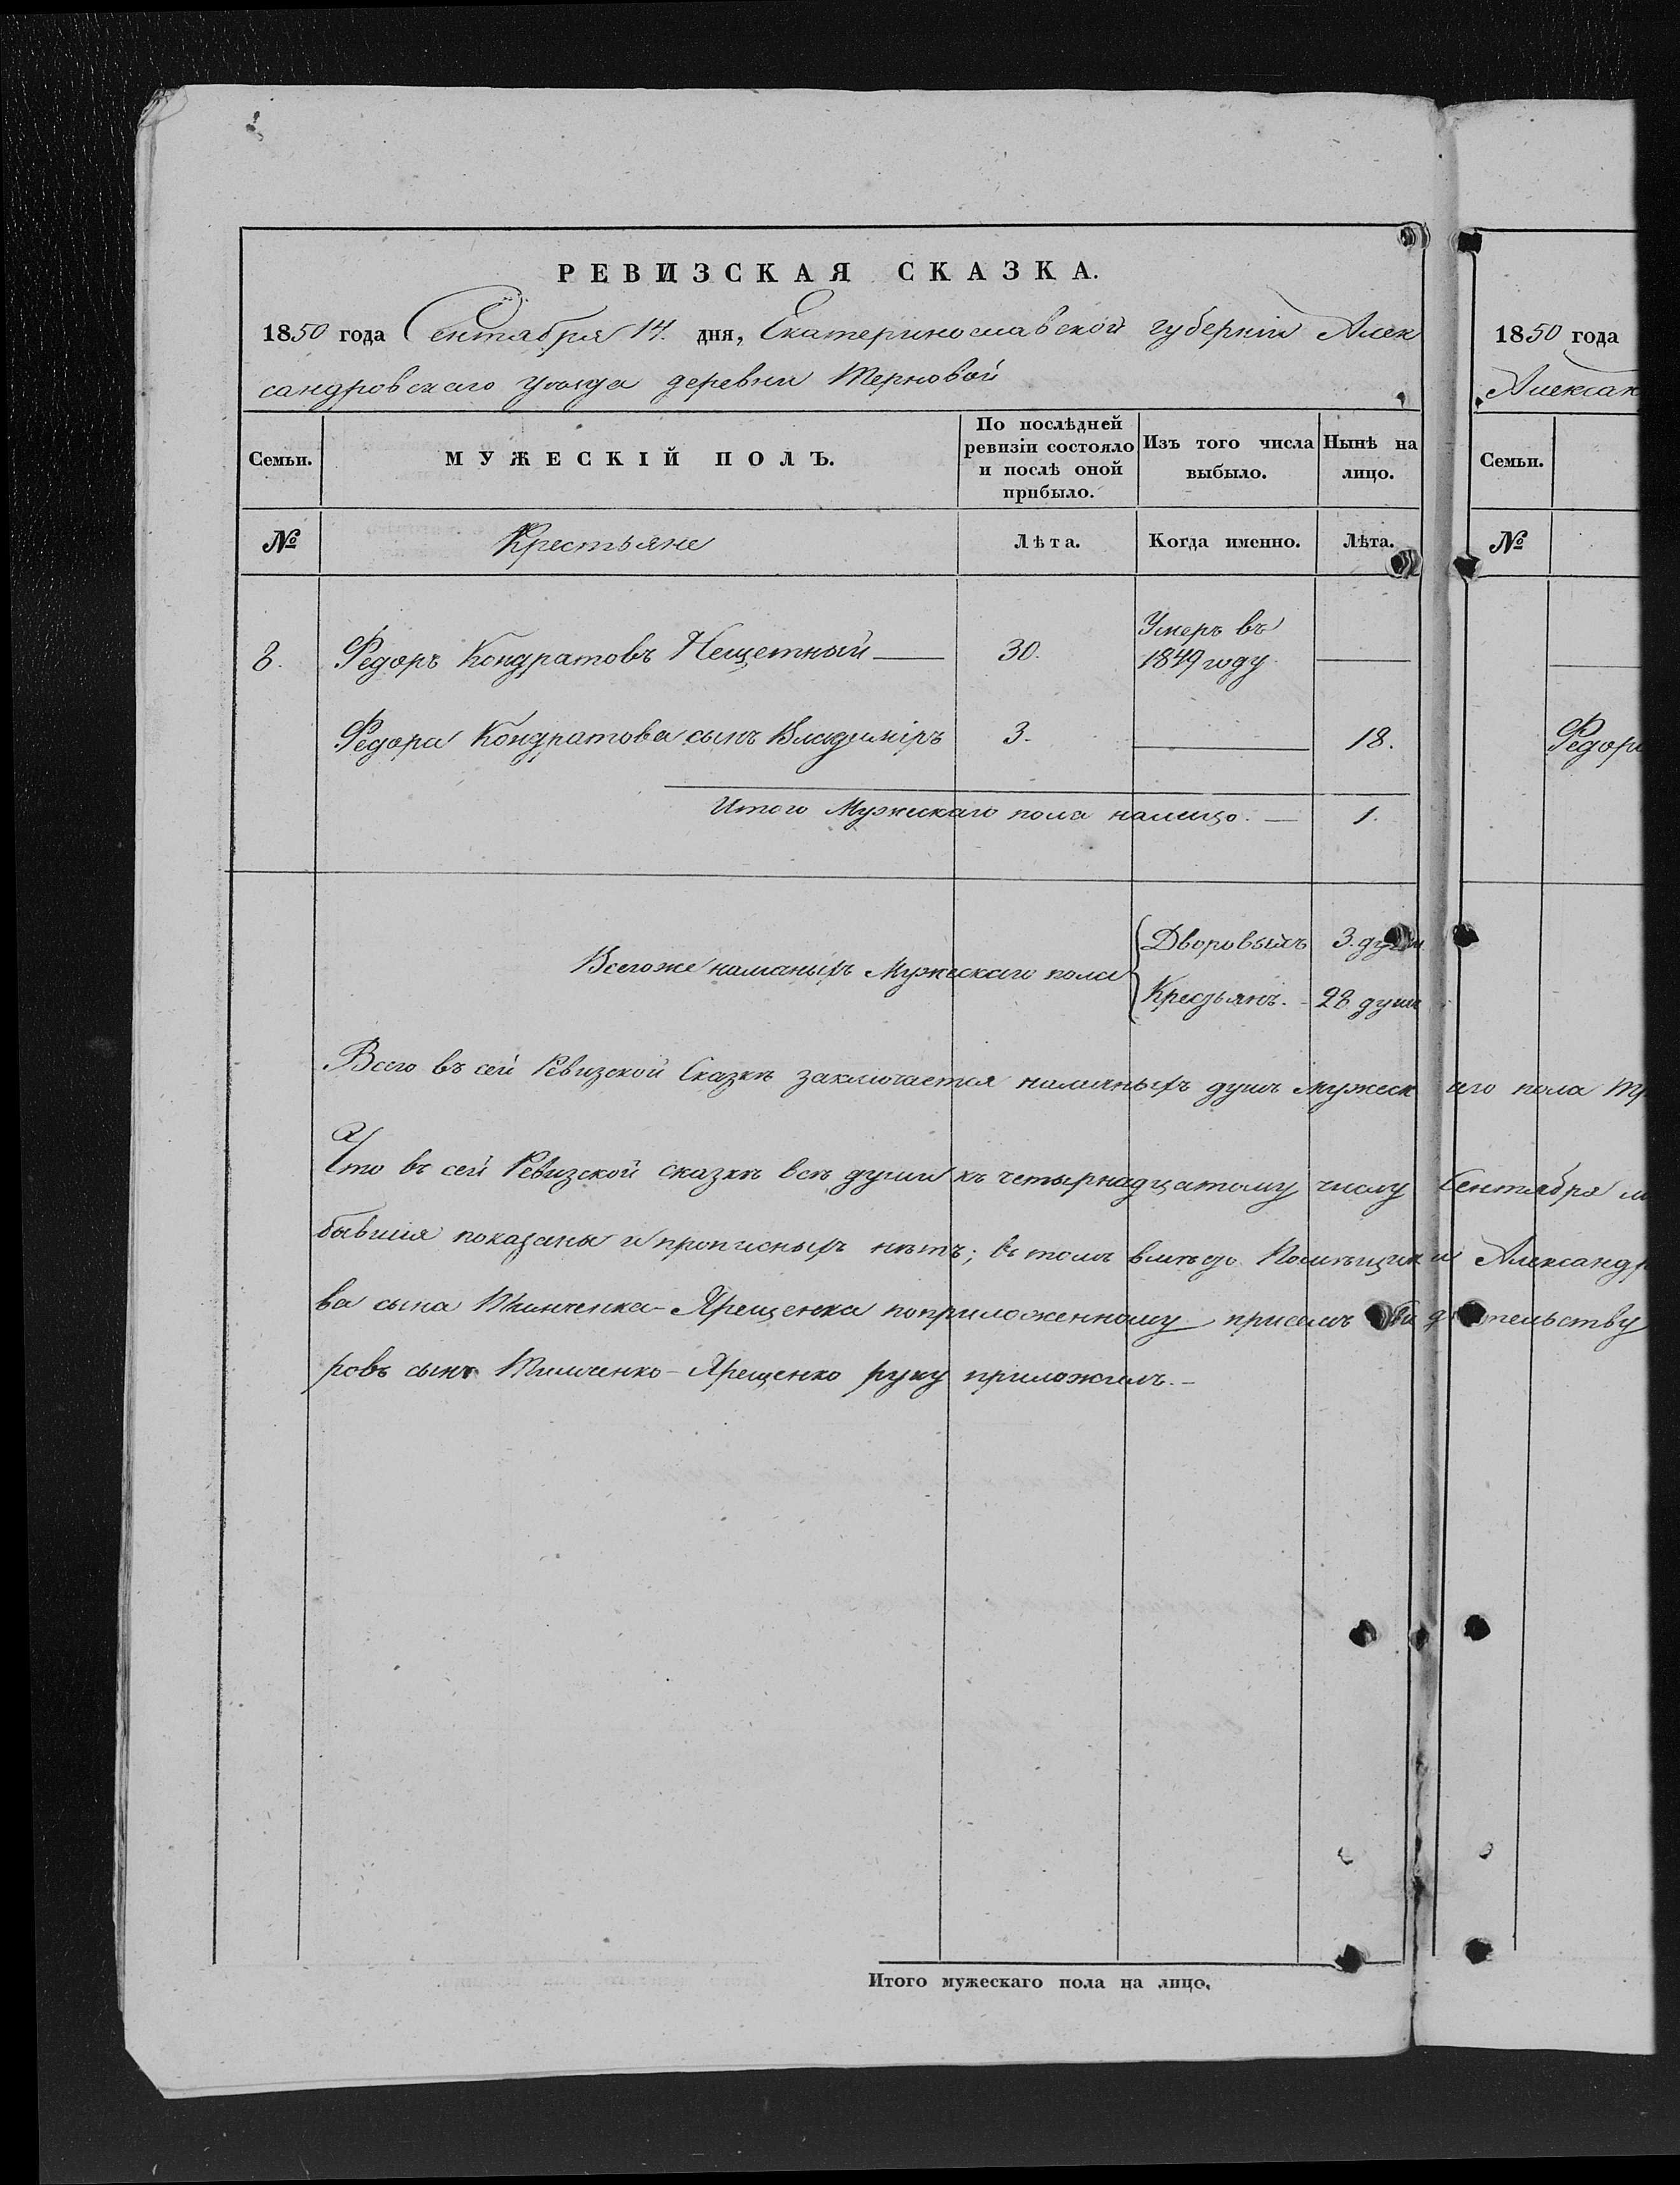 РЕВИЗСКАЯ СКАЗКА.
1850 года Сентября 14. дня, Екатеринославской губернiи Алек
сандровскаго уѣзда деревни Терновой
Семьи.
МУЖЕСКІЙ ПОЛЪ.
По послѣдней ревизіи состояло и послѣ оной прибыло.
Изъ того числа выбыло.
Нынѣ на лицо.
№ Крестьяне Лѣта. Когда именно. Лѣта.
8. Федоръ Кондратовъ Нещетный — 30. Умеръ въ 1849 году. —
Федора Кондратова сынъ Владимiръ 3. — 18.
Итого Мужескаго пола налицо. — 1.
Всегоже наличныхъ Мужескаго пола
Дворовыхъ 3. души
Крестьянъ. - 28 душъ
Всего въ сей Ревизской Сказкѣ заключается наличныхъ душъ мужеск аго пола
Что въ сей Ревизской сказкѣ всѣ души къ четырнадцатому числу Сентября
бывшiя показаны и прописныхъ нѣтъ; въ томъ вмѣсто Помѣщика Александр
ва сына Тимченка-Ярещенка поприложенному присемъ
ровъ сынъ Тимченко-Ярещенко руку приложилъ.-
Итого мужескаго пола на лицо.
1850 года
Алексан
Семьи.
№
Федора